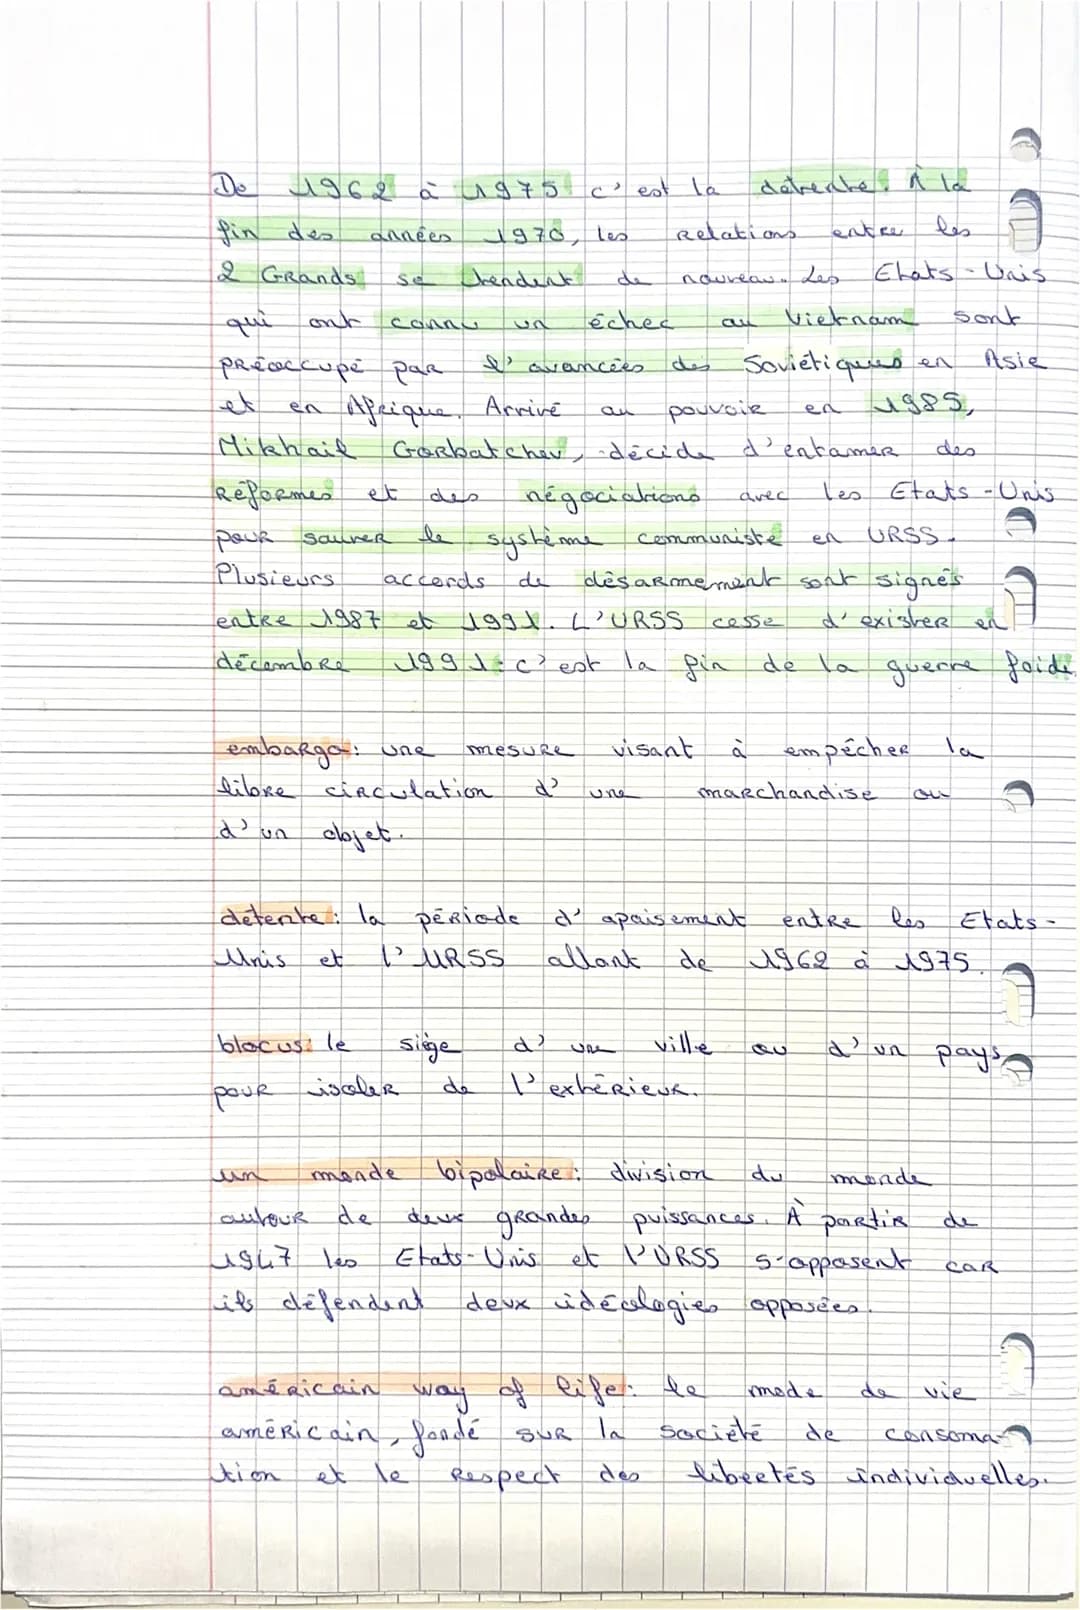 De 1962 à 1975 c'est la détente. À la
fin des années 1970, les relations entre les
2 Grands se tendent de nouveau. Les Etats-Unis
qui ont connu un échec au Vietnam sont
préoccupé par l'avancées des Soviétiques en Asie
et en Afrique. Arrivé au pouvoir en 1985,
Mikhail Gorbatchev, décide d'entamer des
réformes et des négociations avec les Etats-Unis
pour sauver le système communiste en URSS.
Plusieurs accords de désarmement sont signés
entre 1987 et 1991. L'URSS cesse d'exister en
décembre 1991: c'est la fin de la guerre foide.
embargo: une mesure visant à empêcher la
libre circulation d'une marchandise ou
d'un objet.
détente: la période d'apaisement entre les Etats-
Unis et l'URSS allant de 1962 à 1975.
blocus: le siège d'une ville ou d'un pays
pour isoler de l'extérieur.
un monde bipolaire: division du monde
autour de deux grandes puissances. À partir de
1947 les Etats-Unis et l'URSS s'opposent car
ils défendent deux idéologies opposées.
américain way of life: le mode de vie
américain, fondé sur la société de consoma-
tion et le respect des libertés individuelles.